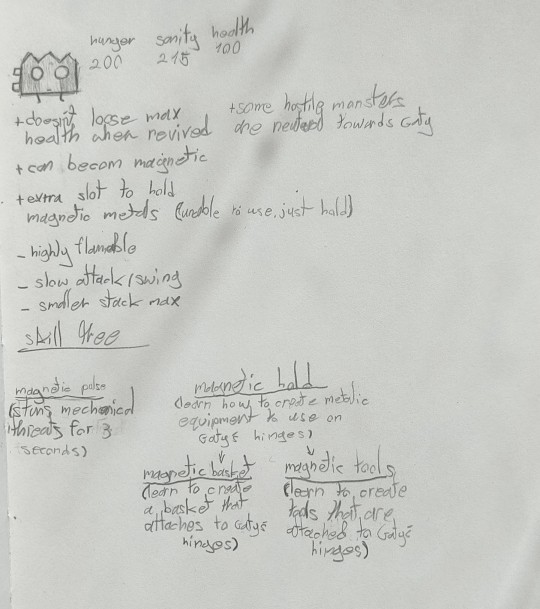 hunger sanity health
200 215 100
+doesn't loose max
health when revived
+some hostile monsters
are neutral towards Gaty
+can becom magnetic
+extra slot to hold
magnetic metals (unable to use, just hold)
- highly flamable
- slow attack/swing
- smaller stack max
skill tree
magnetic pulse
(stuns mechanical
threats for 3
seconds)
magnetic hold
(learn how to create metalic
equipment to use on
Gaty's hinges)
magnetic basket
(learn to create
a basket that
attaches to Gaty's
hinges)
magnetic tools
(learn to create
tools that are
attached to Gaty's
hinges)